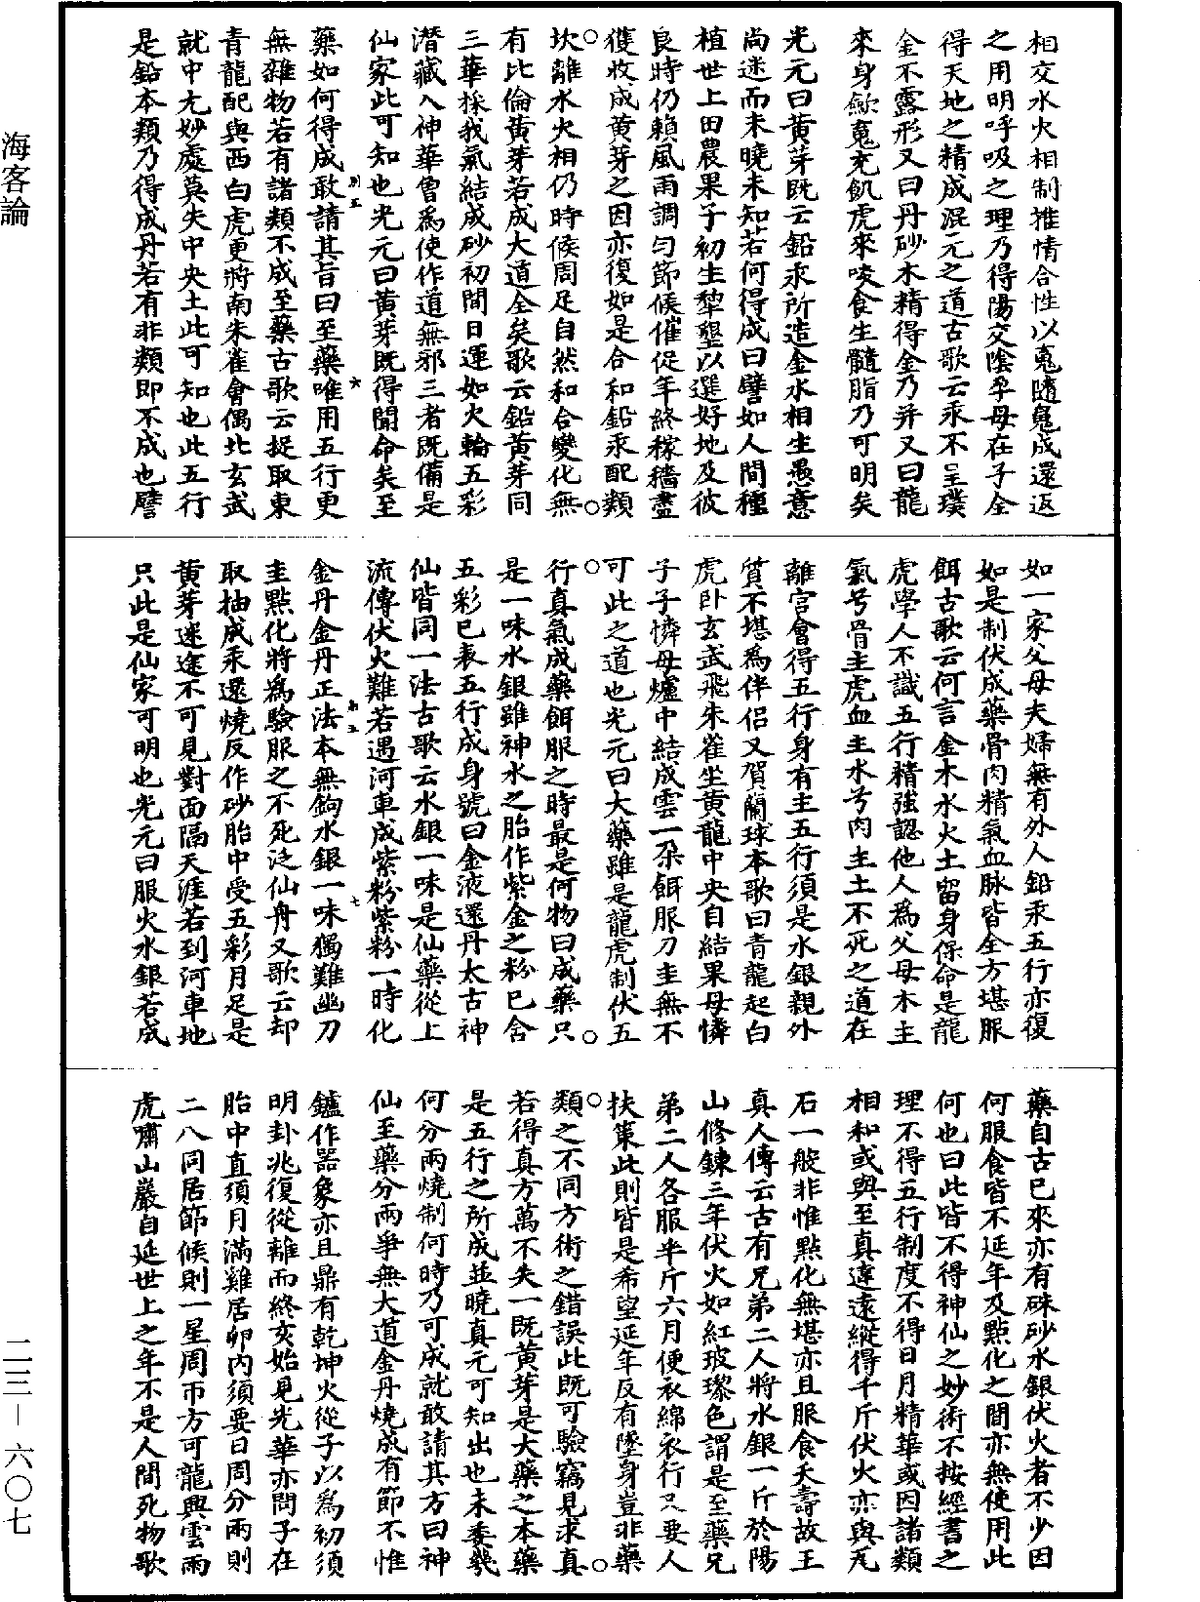 海客論
相交水火相制推情合性以䰟隨魄成還返
之用明呼吸之理乃得陽交陰孕母在子全
得天地之精成混元之道古歌云汞不呈璞
金不露形又曰丹砂木精得金乃并又曰龍
來身歛䰟充飢虎來唼食生髓脂乃可明矣
光元曰黃芽既云鉛汞所造金水相生愚意
尚迷而未曉未知若何得成曰譬如人間種
植世上田農果子初生犂墾以選好地及彼
良時仍賴風雨調勻節候催促年終稼穡盡
獲收成黃芽之因亦復如是合和鉛汞配類
坎離水火相仍時候周足自然和合變化無
有比倫黃芽若成大道全矣歌云鉛黃芽同
三華採我氣結成砂初間日運如火輪五彩
潛藏入神華曾為使作道無邪三者既備是
仙家此可知也光元曰黃芽既得聞命矣至
藥如何得成敢請其旨曰至藥唯用五行更
無雜物若有諸類不成至藥古歌云捉取東
青龍配與西白虎更將南朱雀會偶北玄武
就中尤妙處莫失中央土此可知也此五行
是鉛本類乃得成丹若有非類即不成也譬
如一家父母夫婦無有外人鉛汞五行亦復
如是制伏成藥骨肉精氣血脉皆全方堪服
餌古歌云何言金木水火土留身保命是龍
虎學人不識五行精強認他人為父母木主
氣兮骨主虎血主水兮肉主土不死之道在
離宮會得五行身有主五行須是水銀親外
質不堪為伴侶又賀蘭球本歌曰青龍起白
虎卧玄武飛朱雀坐黃龍中央自結果母憐
子子憐母爐中結成雲一朶餌服刀圭無不
可此之道也光元曰大藥雖是龍虎制伏五
行真氣成藥餌服之時最是何物曰成藥只
是一味水銀雖神水之胎作紫金之粉已含
五彩已表五行成身號曰金液還丹太古神
仙皆同一法古歌云水銀一味是仙藥從上
流傳伏火難若遇河車成紫粉紫粉一時化
金丹金丹正法本無鉤水銀一味獨難幽刀
圭點化將為驗服之不死泛仙舟又歌云却
取抽成汞還燒反作砂胎中受五彩月足是
黃芽迷途不可見對面隔天涯若到河車地
只此是仙家可明也光元曰服火水銀若成
藥自古已來亦有硃砂水銀伏火者不少因
何服食皆不延年及點化之間亦無使用此
何也曰此皆不得神仙之妙術不按經書之
理不得五行制度不得日月精華或因諸類
相和或與至真違遠縱得千斤伏火亦與瓦
石一般非惟點化無堪亦且服食夭壽故王
真人傳云古有兄弟二人將水銀一斤於陽
山修鍊三年伏火如紅玻瓈色謂是至藥兄
弟二人各服半斤六月便衣綿衣行又要人
扶策此則皆是希望延年反有墜身豈非藥
類之不同方術之錯誤此既可驗竊見求真
若得真方萬不失一既黃芽是大藥之本藥
是五行之所成並曉真元可知出也未委幾
何分兩燒制何時乃可成就敢請其方曰神
仙至藥分兩爭無大道金丹燒成有節不惟
鑪作器象亦且鼎有乾坤火從子以為初須
明卦兆復從離而終亥始見光華亦問子在
胎中直須月滿雞居卵內須要日周分兩則
二八同居節候則一星周帀方可龍興雲雨
虎嘯山巖自延世上之年不是人間死物歌
二三-六〇七